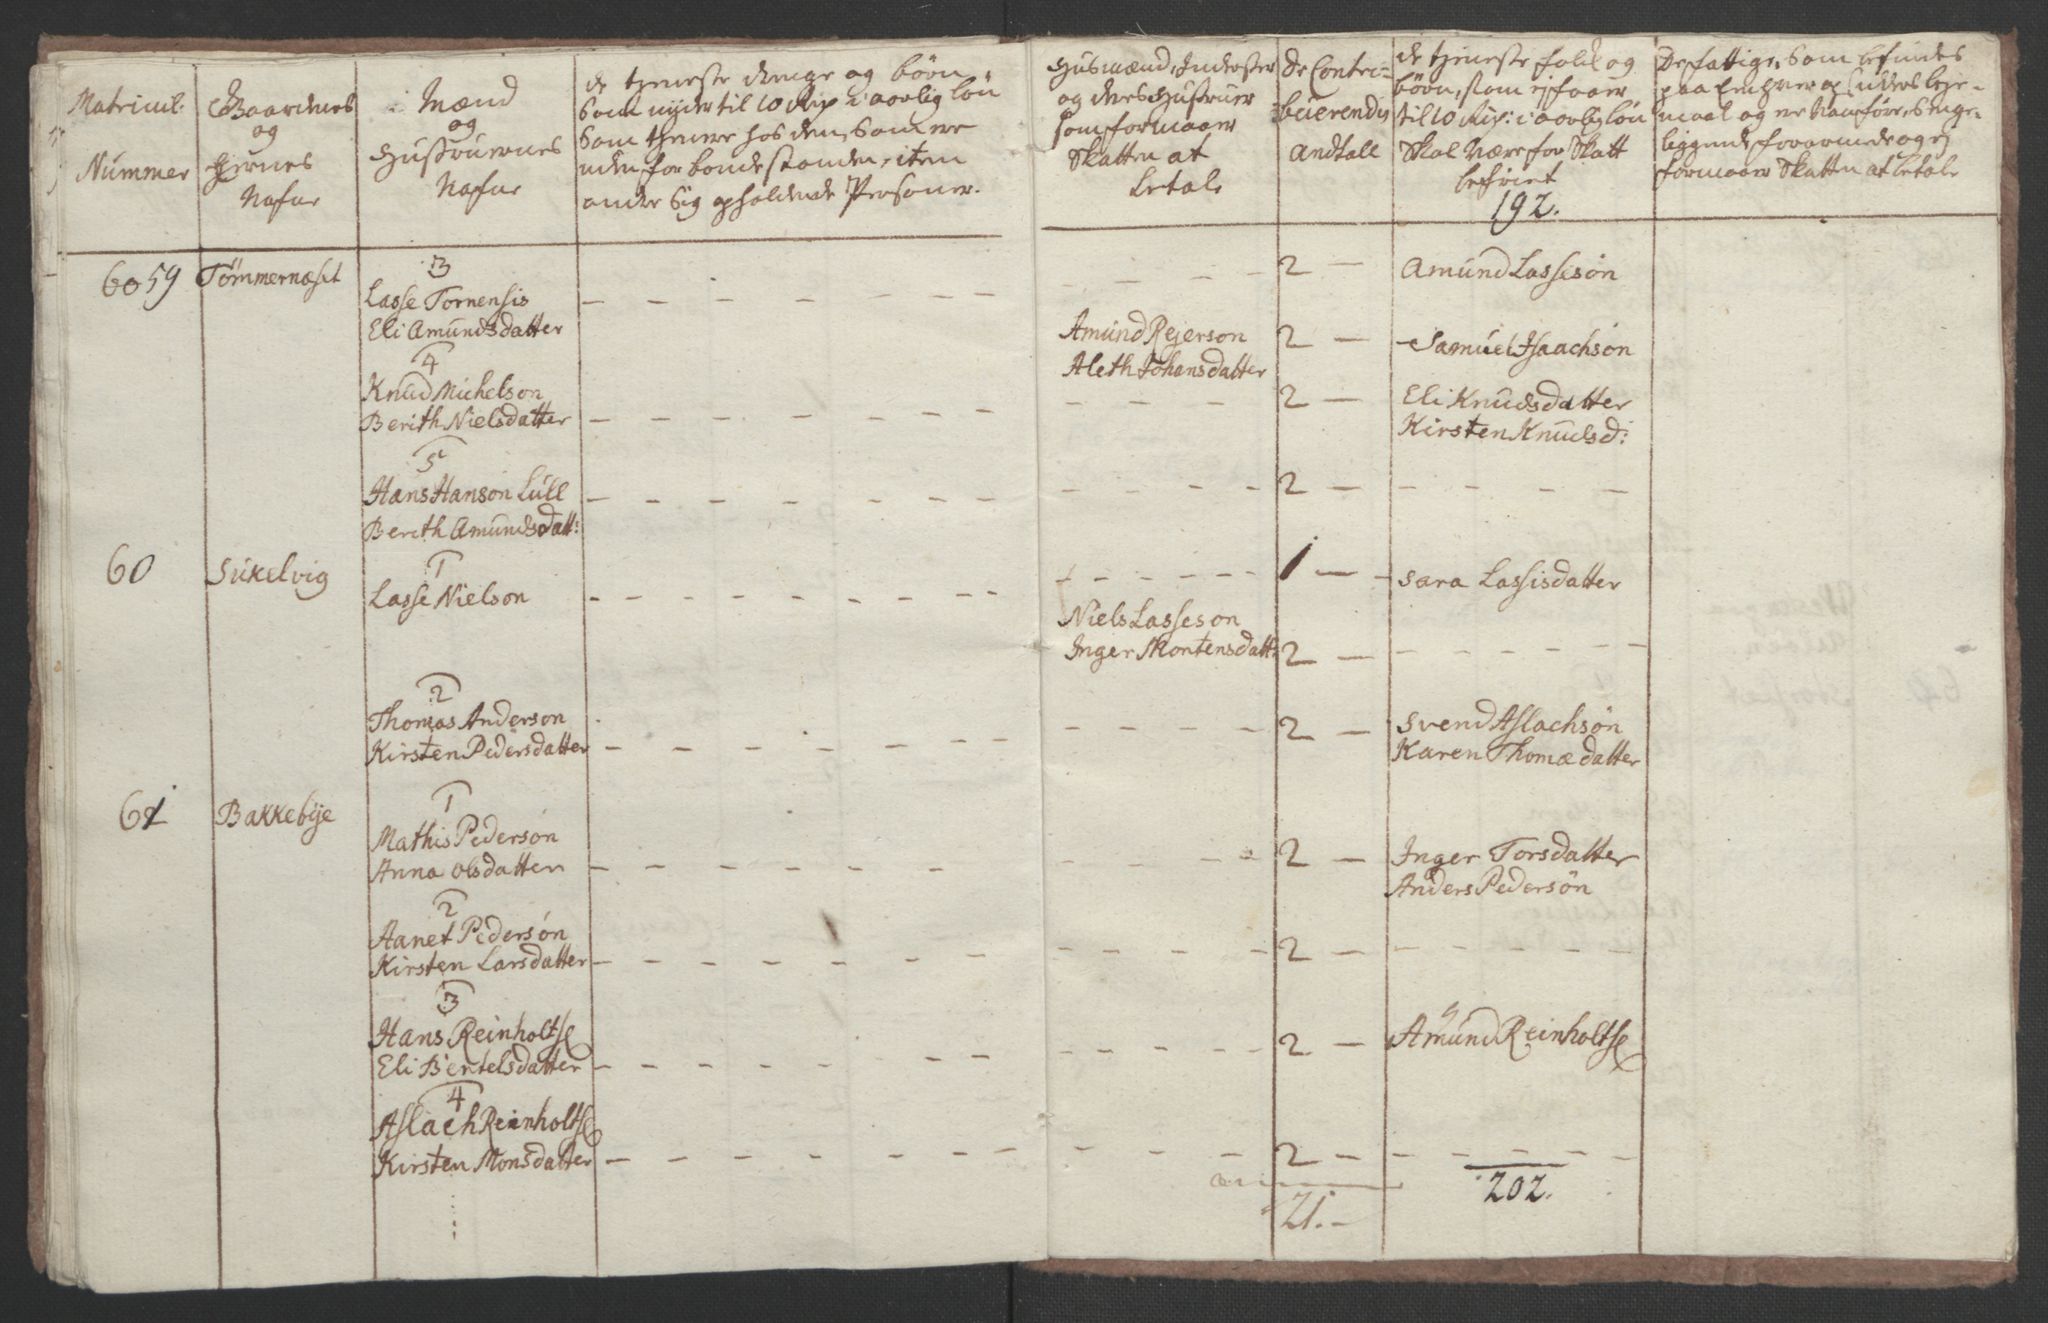 Matricul:
Nummer
Gaardenes
og
Ejernes
Nafne
Mænd
og
Hustruernes
Nafne
de tjeneste drenge og børn
som nyder til 10 Rdr i aarlig løn
som tjener hos dem, som ere
uden for bondestanden, item
andre sig opholdende Personer.
Husmænd, Inderster
og deres Hustruer
som formaaer
Skatten at
betale
De Contri-
buerendis
Andtall
de tjeneste folck og
børn, som ej faaer
til 10 Rdr: i aarlig løn
Skal være for Skatt
befriet
192.
De fattige, som befindes
paa Enhver
maal og ere vanføre, senge-
liggende, forarmede og ej
formaaer Skatten at betale
6059 Tömmernæset
3
Lasse Tornensis
Eli Amundsdatter
2 Amund Lassesøn
Amund Rejerson
Aleth Johansdatter
2 Samuel Isaachsøn
4
Knud Michelson
Berith Nielsdatter
2 Eli Knudsdatter
Kirsten Knudsd:
5
Hans Hanson Lüll
Berith Amundsdatt:
2
60 Sükelvig
1
Lasse Nielson
1 Sara Lassisdatter
Niels Lasseson
Inger Mortensdatt: 2
2
Thomas Anderson
Kirsten Pedersdatter
2 Svend Aslachsøn
Karen Thomædatter
61 Bakkebye
1
Mathis Pedersøn
Anna Olsdatter
2 Inger Torsdatter
Anders Pedersøn
2
Aanet Pedersøn
Kirsten Larsdatter
2
3
Hans Reinholts
Eli Bertelsdatter
2 Amund Reinholts
4
Aslach Reinholts
Kirsten Monsdatter
2
21.-
202.